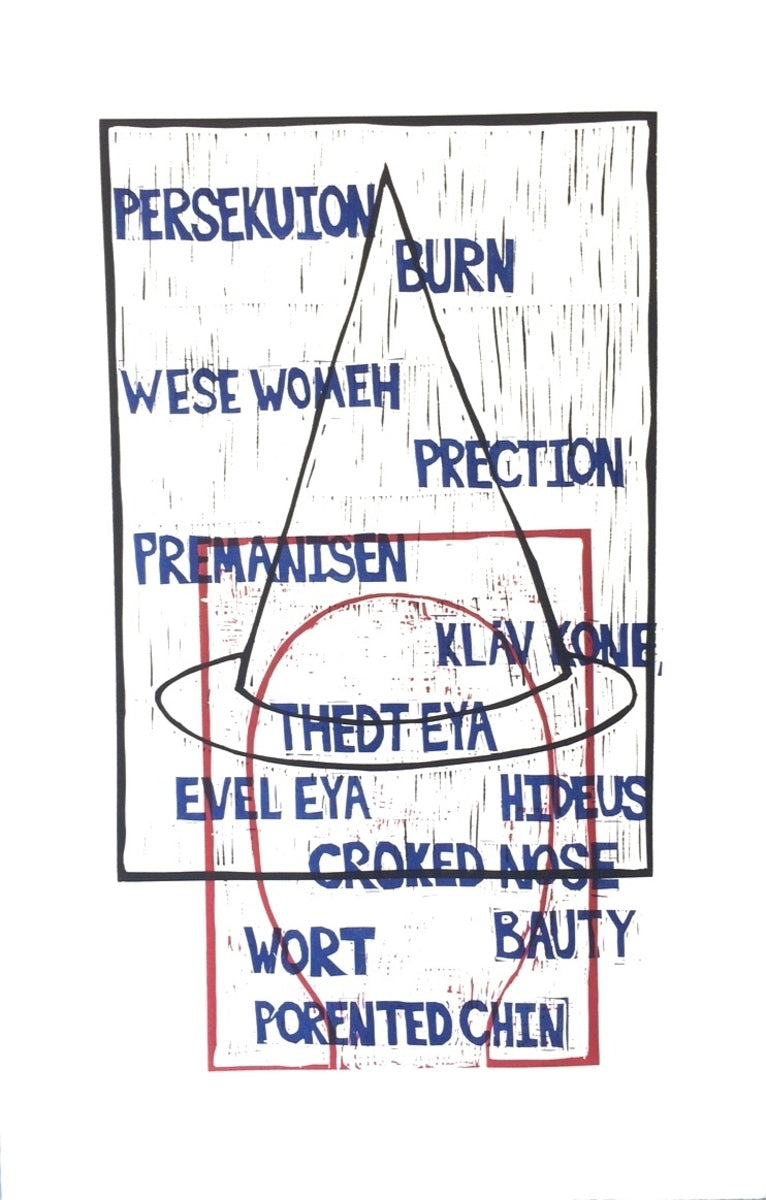 PERSEKUION
BURN
WESE WOMEH
PRECTION
PREMANISEN
KLAV KONE,
THEDT EYA
EVEL EYA
HIDEUS
CROKED NOSE
BAUTY
WORT
PORENTED CHIN